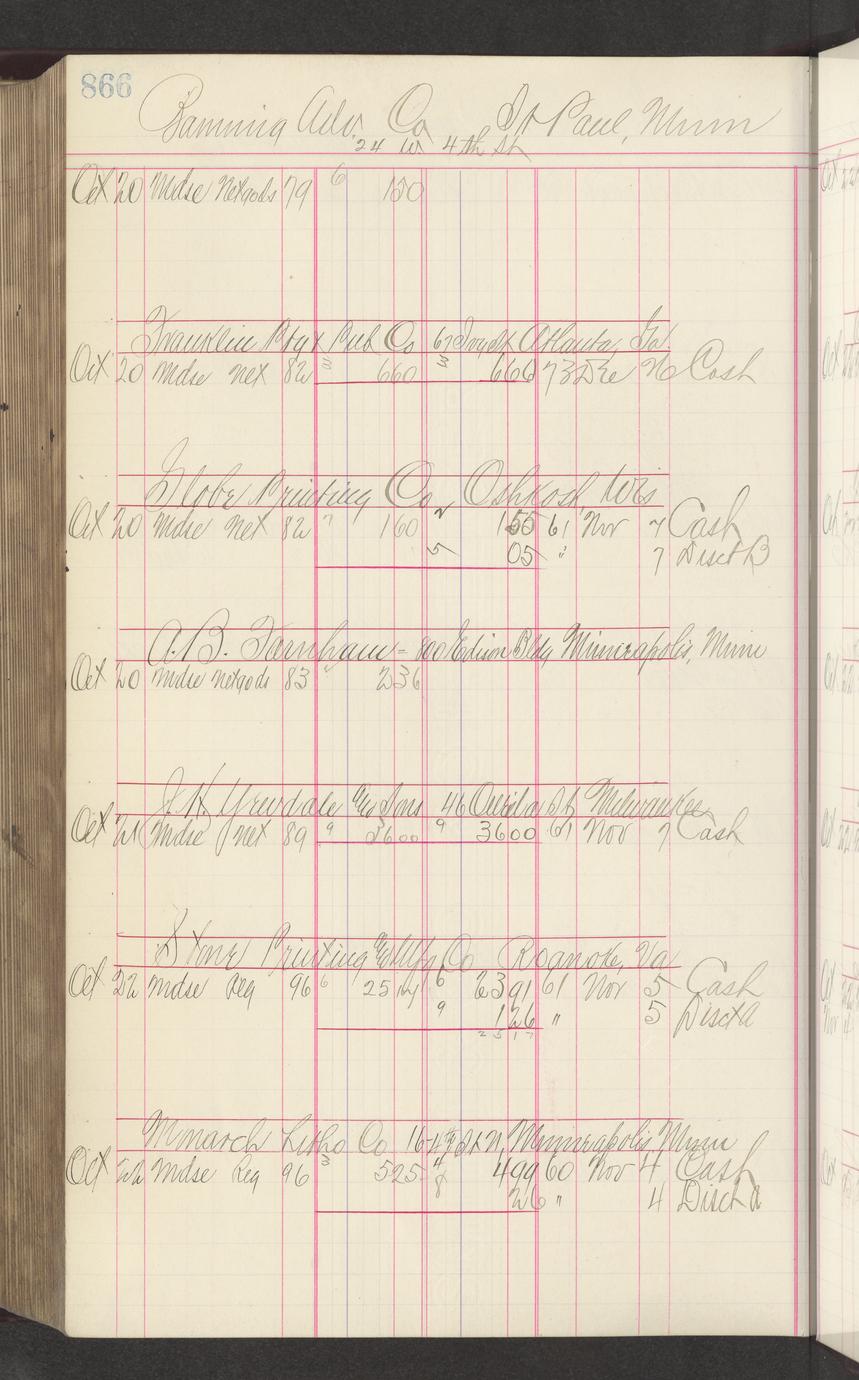 866
Banning Adv. Co St Paul, Minn
24 W 4th St
Oct 20 Mdse netgods 79 6 150
Franklin Ptg & Pub Co 67 Ivy St Atlanta, Ga
Oct 20 Mdse net 82 3 660 3 660 73 Dec Cash
Globe Printing Co Oshkosh, Wis
Oct 20 Mdse net 82 7 160 2 155 61 Nov 7 Cash
5 05 " 7 Disct B
A.B. Farnham = 800 Edison Bldg Minneapolis, Minn
Oct 20 Mdse netgods 83 236
J.H. & Sons 46 St Milwaukee
Oct 21 Mdse net 89 9 3600 9 3600 61 Nov 7 Cash
Stone Printing & Mfg Co Roanoke, Va
Oct 22 Mdse Reg 96 6 2517 6 2391 61 Nov 5 Cash
9 126 " 5 Disct A
2517
Monarch Litho Co 16-4th St N, Minneapolis Minn
Oct 22 Mdse Reg 96 3 525 4 499 60 Nov 4 Cash
8 26 " 4 Disct A